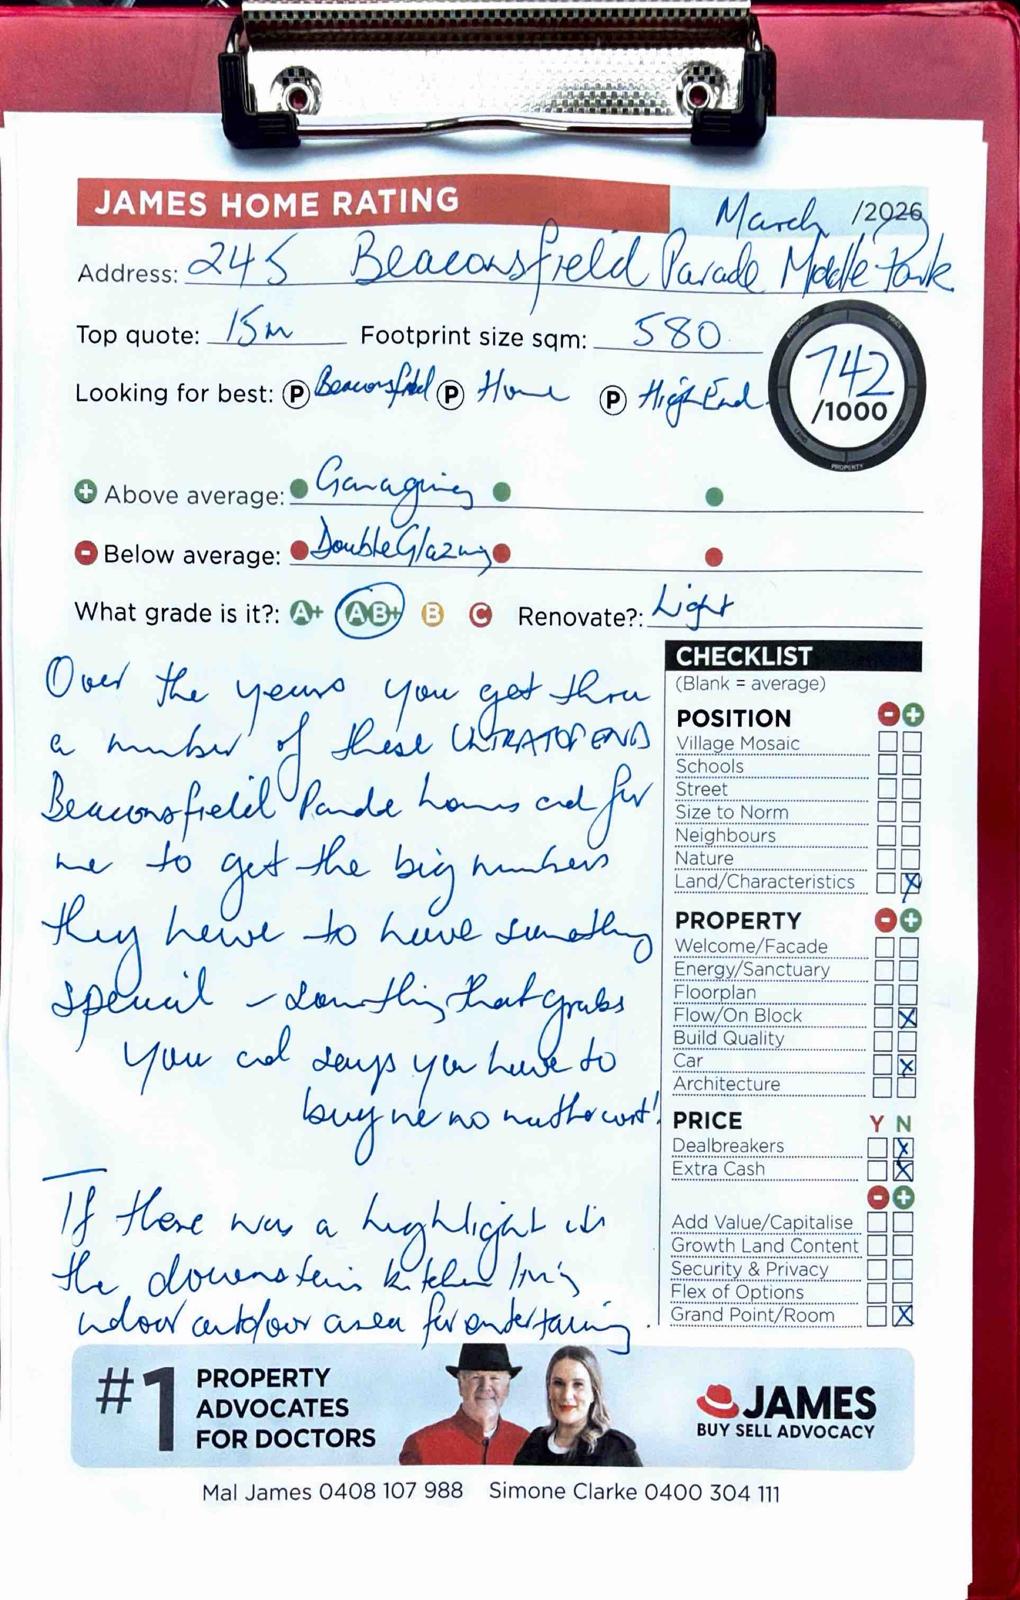 JAMES HOME RATING
March /2026
Address: 245 Beaconsfield Parade Middle Park
Top quote: 15m Footprint size sqm: 580
Looking for best: P Beaconsfield P Home P High End
742
/1000
+ Above average: Garaging
- Below average: Double Glazing
What grade is it?: A+ AB+ B C Renovate?: Light
Over the years you get thru
a number of these ULTRA TOP END
Beaconsfield Parade homes and for
me to get the big numbers
they have to have something
special - something that grabs
you and says you have to
buy me no matter cost!
If there was a highlight its
the downstairs kitchen living
indoor outdoor area for entertaining.
CHECKLIST
(Blank = average)
POSITION - +
Village Mosaic
Schools
Street
Size to Norm
Neighbours
Nature
Land/Characteristics X
PROPERTY - +
Welcome/Facade
Energy/Sanctuary
Floorplan
Flow/On Block X
Build Quality
Car X
Architecture
PRICE Y N
Dealbreakers X
Extra Cash X
- +
Add Value/Capitalise
Growth Land Content
Security & Privacy
Flex of Options
Grand Point/Room X
#1 PROPERTY
ADVOCATES
FOR DOCTORS
JAMES
BUY SELL ADVOCACY
Mal James 0408 107 988 Simone Clarke 0400 304 111